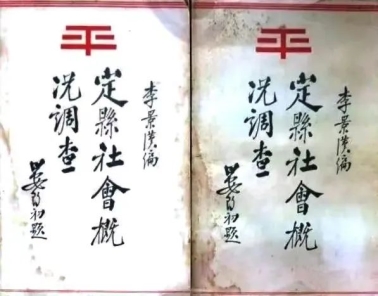 平
李景漢編
定縣社會概
況調查
晏陽初題
平
李景漢編
定縣社會概
況調查
晏陽初題